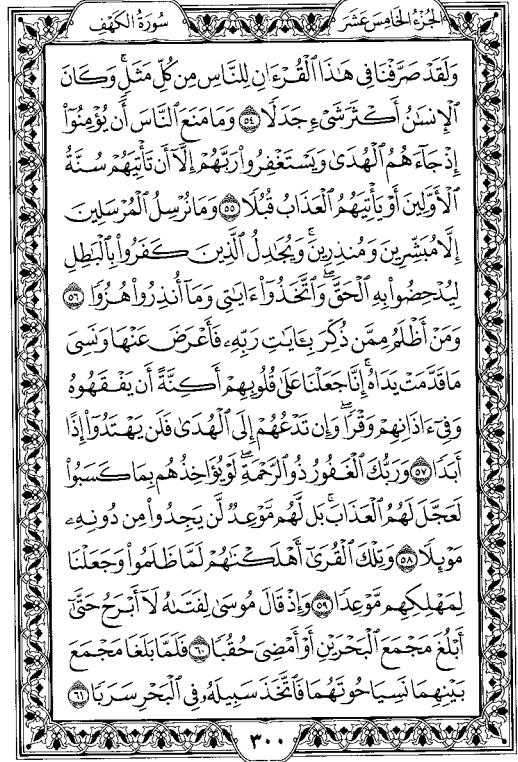 الجزء الخامس عشر
سورة الكهف
وَلَقَدْ صَرَّفْنَا فِي هَٰذَا ٱلْقُرْءَانِ لِلنَّاسِ مِن كُلِّ مَثَلٍۚ وَكَانَ
ٱلْإِنسَٰنُ أَكْثَرَ شَىْءٍ جَدَلًا ٥٤ وَمَا مَنَعَ ٱلنَّاسَ أَن يُؤْمِنُوٓا۟
إِذْ جَآءَهُمُ ٱلْهُدَىٰ وَيَسْتَغْفِرُوا۟ رَبَّهُمْ إِلَّآ أَن تَأْتِيَهُمْ سُنَّةُ
ٱلْأَوَّلِينَ أَوْ يَأْتِيَهُمُ ٱلْعَذَابُ قُبُلًا ٥٥ وَمَا نُرْسِلُ ٱلْمُرْسَلِينَ
إِلَّا مُبَشِّرِينَ وَمُنذِرِينَۚ وَيُجَٰدِلُ ٱلَّذِينَ كَفَرُوا۟ بِٱلْبَٰطِلِ
لِيُدْحِضُوا۟ بِهِ ٱلْحَقَّۖ وَٱتَّخَذُوٓا۟ ءَايَٰتِى وَمَآ أُنذِرُوا۟ هُزُوًا ٥٦
وَمَنْ أَظْلَمُ مِمَّن ذُكِّرَ بِـَٔايَٰتِ رَبِّهِۦ فَأَعْرَضَ عَنْهَا وَنَسِىَ
مَا قَدَّمَتْ يَدَاهُۚ إِنَّا جَعَلْنَا عَلَىٰ قُلُوبِهِمْ أَكِنَّةً أَن يَفْقَهُوهُ
وَفِىٓ ءَاذَانِهِمْ وَقْرًاۖ وَإِن تَدْعُهُمْ إِلَى ٱلْهُدَىٰ فَلَن يَهْتَدُوٓا۟ إِذًا
أَبَدًا ٥٧ وَرَبُّكَ ٱلْغَفُورُ ذُو ٱلرَّحْمَةِۖ لَوْ يُؤَاخِذُهُم بِمَا كَسَبُوا۟
لَعَجَّلَ لَهُمُ ٱلْعَذَابَۚ بَل لَّهُم مَّوْعِدٌ لَّن يَجِدُوا۟ مِن دُونِهِۦ
مَوْئِلًا ٥٨ وَتِلْكَ ٱلْقُرَىٰٓ أَهْلَكْنَٰهُمْ لَمَّا ظَلَمُوا۟ وَجَعَلْنَا
لِمَهْلِكِهِم مَّوْعِدًا ٥٩ وَإِذْ قَالَ مُوسَىٰ لِفَتَىٰهُ لَآ أَبْرَحُ حَتَّىٰٓ
أَبْلُغَ مَجْمَعَ ٱلْبَحْرَيْنِ أَوْ أَمْضِىَ حُقُبًا ٦٠ فَلَمَّا بَلَغَا مَجْمَعَ
بَيْنِهِمَا نَسِيَا حُوتَهُمَا فَٱتَّخَذَ سَبِيلَهُۥ فِى ٱلْبَحْرِ سَرَبًا ٦١
٣٠٠